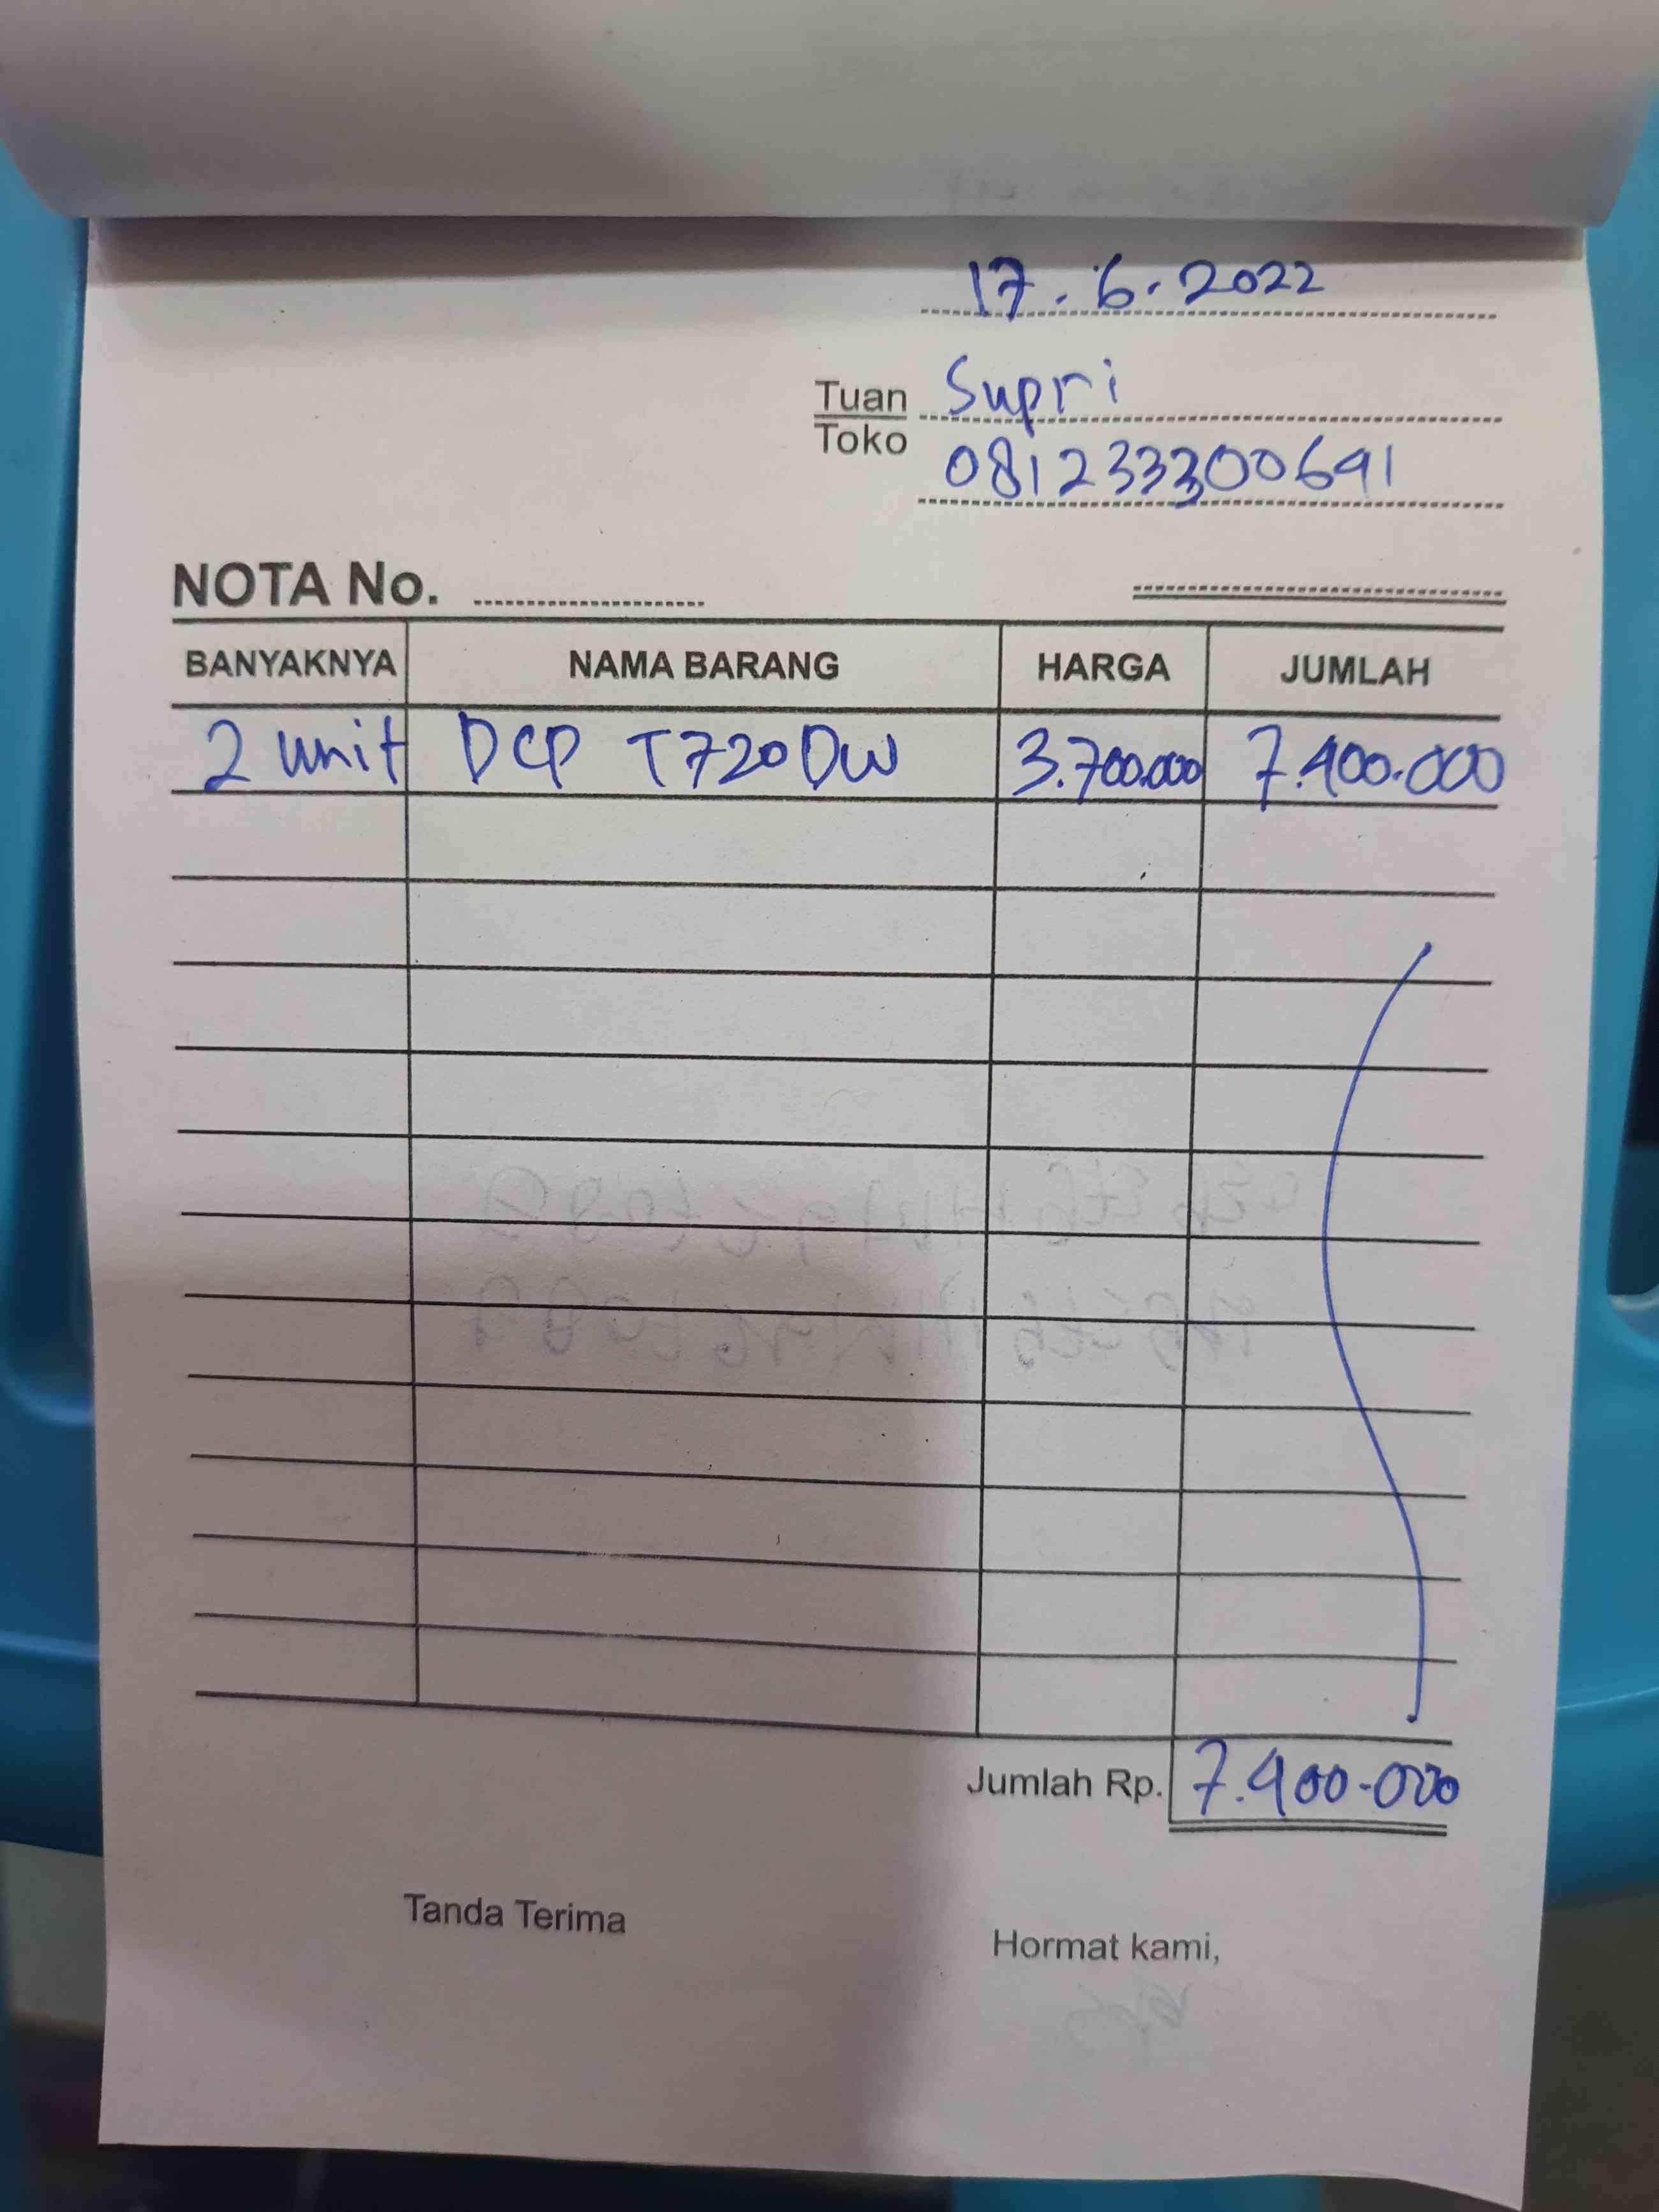 17.6.2022
Tuan Supri
Toko 081233300691
NOTA No.
BANYAKNYA NAMA BARANG HARGA JUMLAH
2 unit DCP T720DW 3.700.000 7.400.000
Jumlah Rp. 7.400.000
Tanda Terima
Hormat kami,